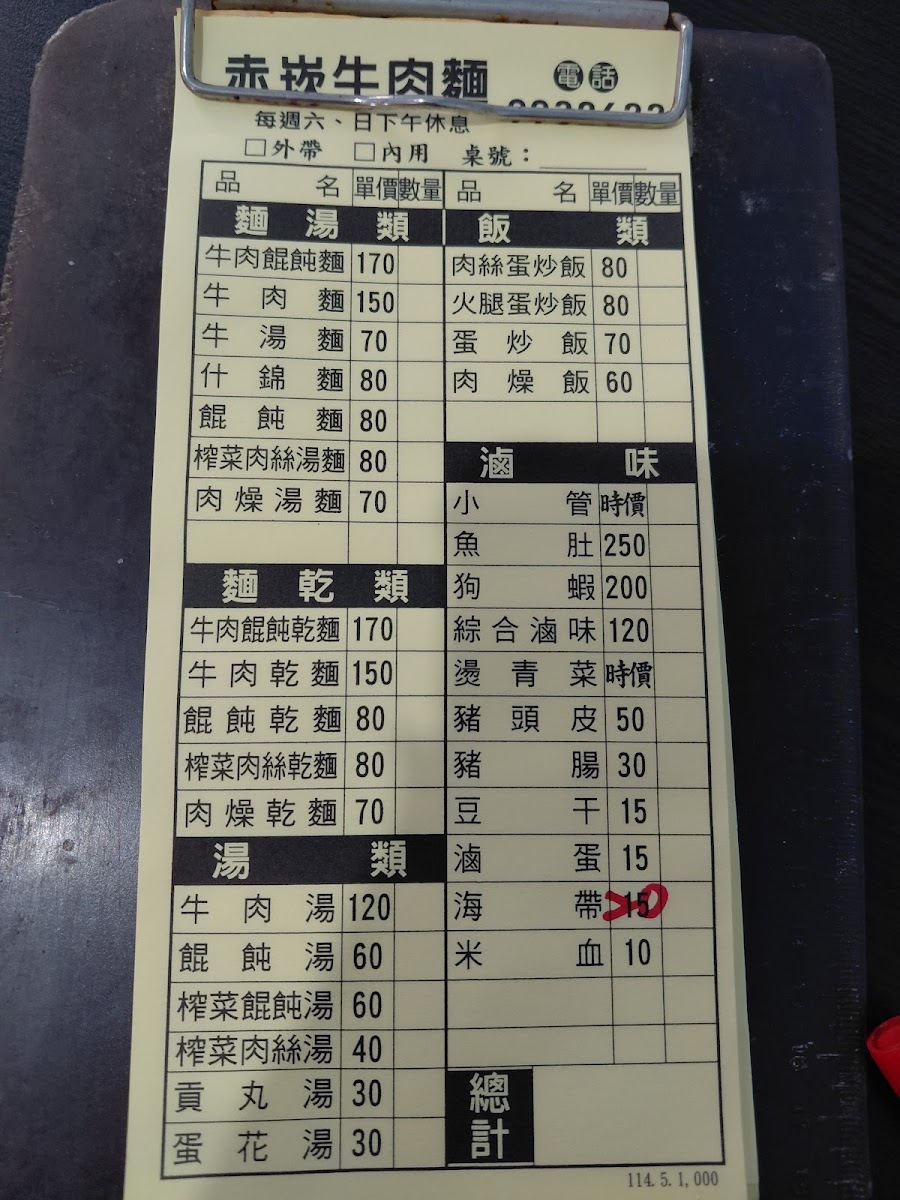 赤崁牛肉麵 電話
每週六、日下午休息
□外帶 □內用 桌號：
品名 單價 數量
麵湯類
牛肉餛飩麵 170
牛肉麵 150
牛湯麵 70
什錦麵 80
餛飩麵 80
榨菜肉絲湯麵 80
肉燥湯麵 70
麵乾類
牛肉餛飩乾麵 170
牛肉乾麵 150
餛飩乾麵 80
榨菜肉絲乾麵 80
肉燥乾麵 70
湯類
牛肉湯 120
餛飩湯 60
榨菜餛飩湯 60
榨菜肉絲湯 40
貢丸湯 30
蛋花湯 30
品名 單價 數量
飯類
肉絲蛋炒飯 80
火腿蛋炒飯 80
蛋炒飯 70
肉燥飯 60
滷味
小管 時價
魚肚 250
狗蝦 200
綜合滷味 120
燙青菜 時價
豬頭皮 50
豬腸 30
豆干 15
滷蛋 15
海帶 15 20
米血 10
總計
114.5.1,000